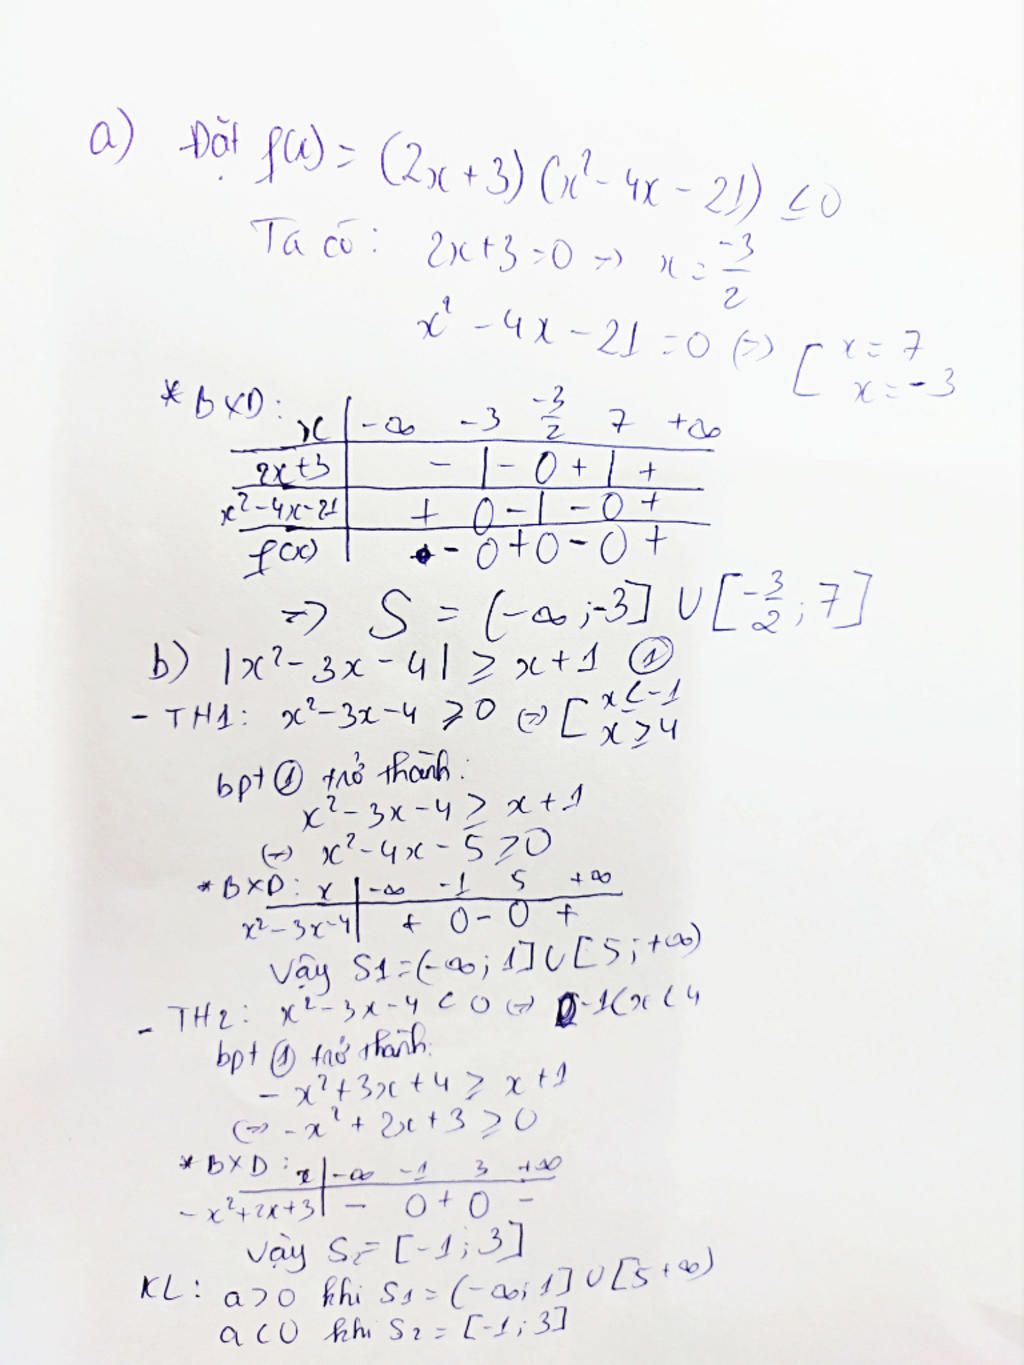 a) Đặt f(x) = (2x+3)(x² - 4x - 21) ≤ 0
Ta có: 2x+3=0 => x = -3/2
x² - 4x - 21 = 0 (=) [ x = 7
x = -3
* BXD:
x | -∞ -3 -3/2 7 +∞
2x+3 | - | - 0 + | +
x²-4x-21 | + 0 - | - 0 +
f(x) | - 0 + 0 - 0 +
=> S = (-∞; -3] ∪ [-3/2; 7]
b) |x² - 3x - 4| ≥ x+1 ①
- TH1: x² - 3x - 4 ≥ 0 (=) [ x ≤ -1
x ≥ 4
bpt ① trở thành:
x² - 3x - 4 ≥ x + 1
(=) x² - 4x - 5 ≥ 0
* BXD: x | -∞ -1 5 +∞
x² - 3x - 4 | + 0 - 0 +
Vậy S1 = (-∞; 1] ∪ [5; +∞)
- TH2: x² - 3x - 4 < 0 (=) -1 < x < 4
bpt ① trở thành:
- x² + 3x + 4 ≥ x + 1
(=) - x² + 2x + 3 ≥ 0
* BXD: x | -∞ -1 3 +∞
- x² + 2x + 3 | - 0 + 0 -
Vậy S2 = [-1; 3]
KL: a > 0 khi S1 = (-∞; 1] ∪ [5 +∞)
a < 0 khi S2 = [-1; 3]